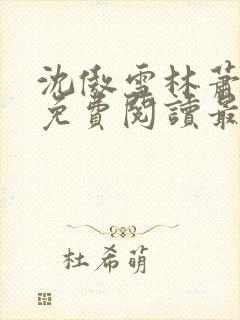 沈傲雪林蕭
免費閱讀最
杜希萌